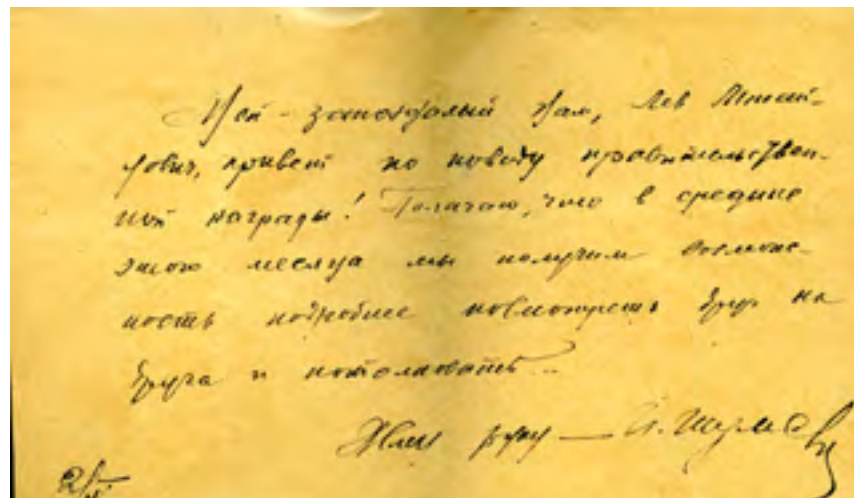 Мой - запоздалый Вам, Лев Михай-
лович, привет по поводу правительствен-
ной награды! Полагаю, что в средине
этого месяца мы получим возмож-
ность подробнее посмотреть друг на
друга и потолковать...
Жму руку —